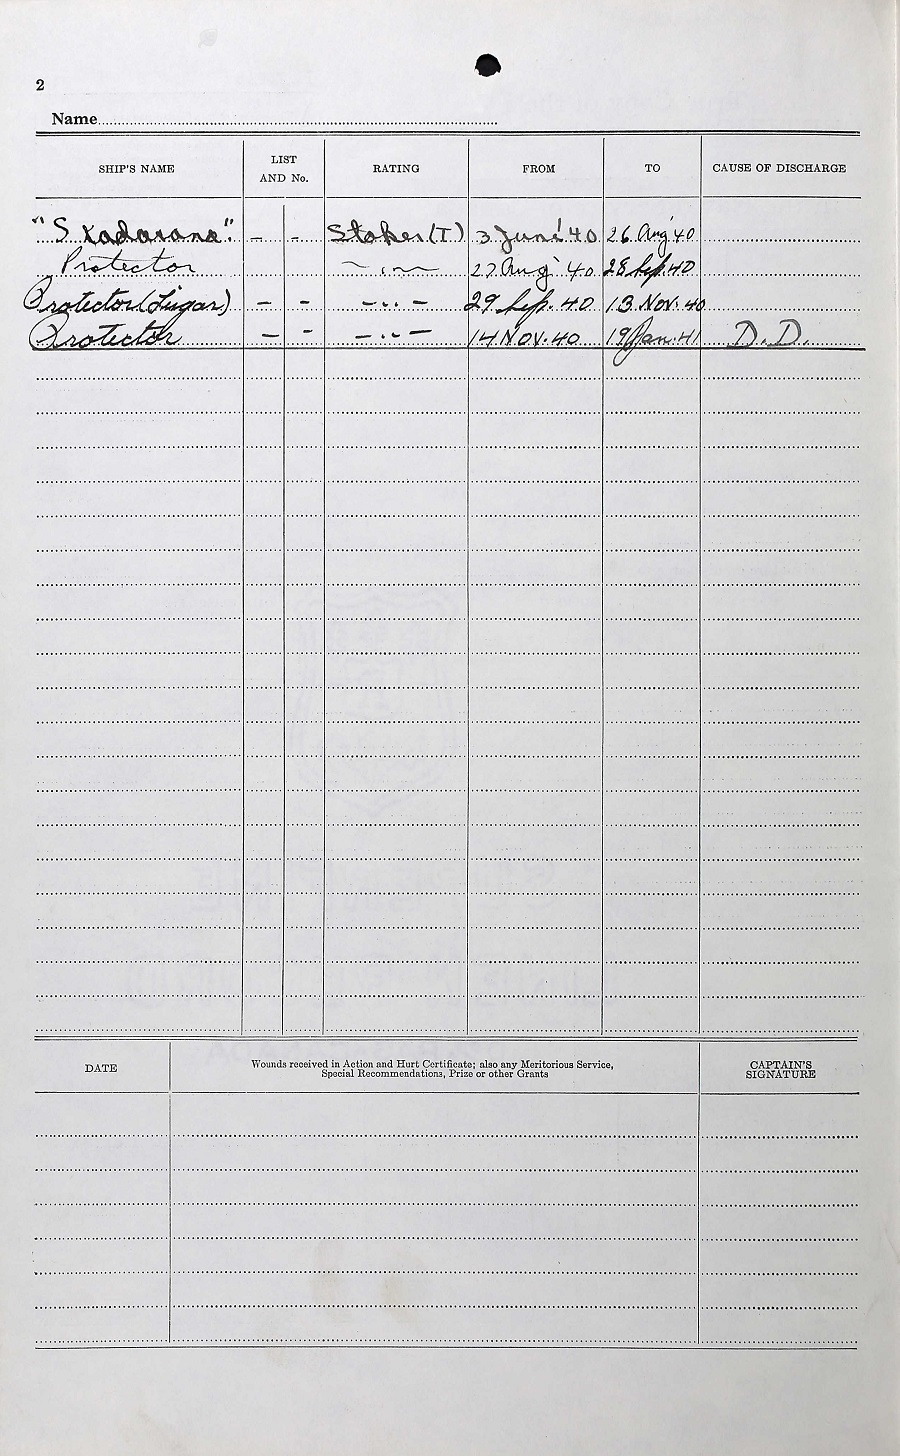 2
Name
SHIP'S NAME LIST AND No. RATING FROM TO CAUSE OF DISCHARGE
"Skadarana". - - Stoker (T) 3 June '40 26 Aug '40
Protector — " — 27 Aug '40 28 Sep. 40
Protector (Lugar) - - - " - 29 Sep. 40 13 Nov. 40
Protector - - - " - 14 Nov. 40 19 Jan. 41 D.D.
DATE Wounds received in Action and Hurt Certificate; also any Meritorious Service, CAPTAIN'S
Special Recommendations, Prize or other Grants SIGNATURE